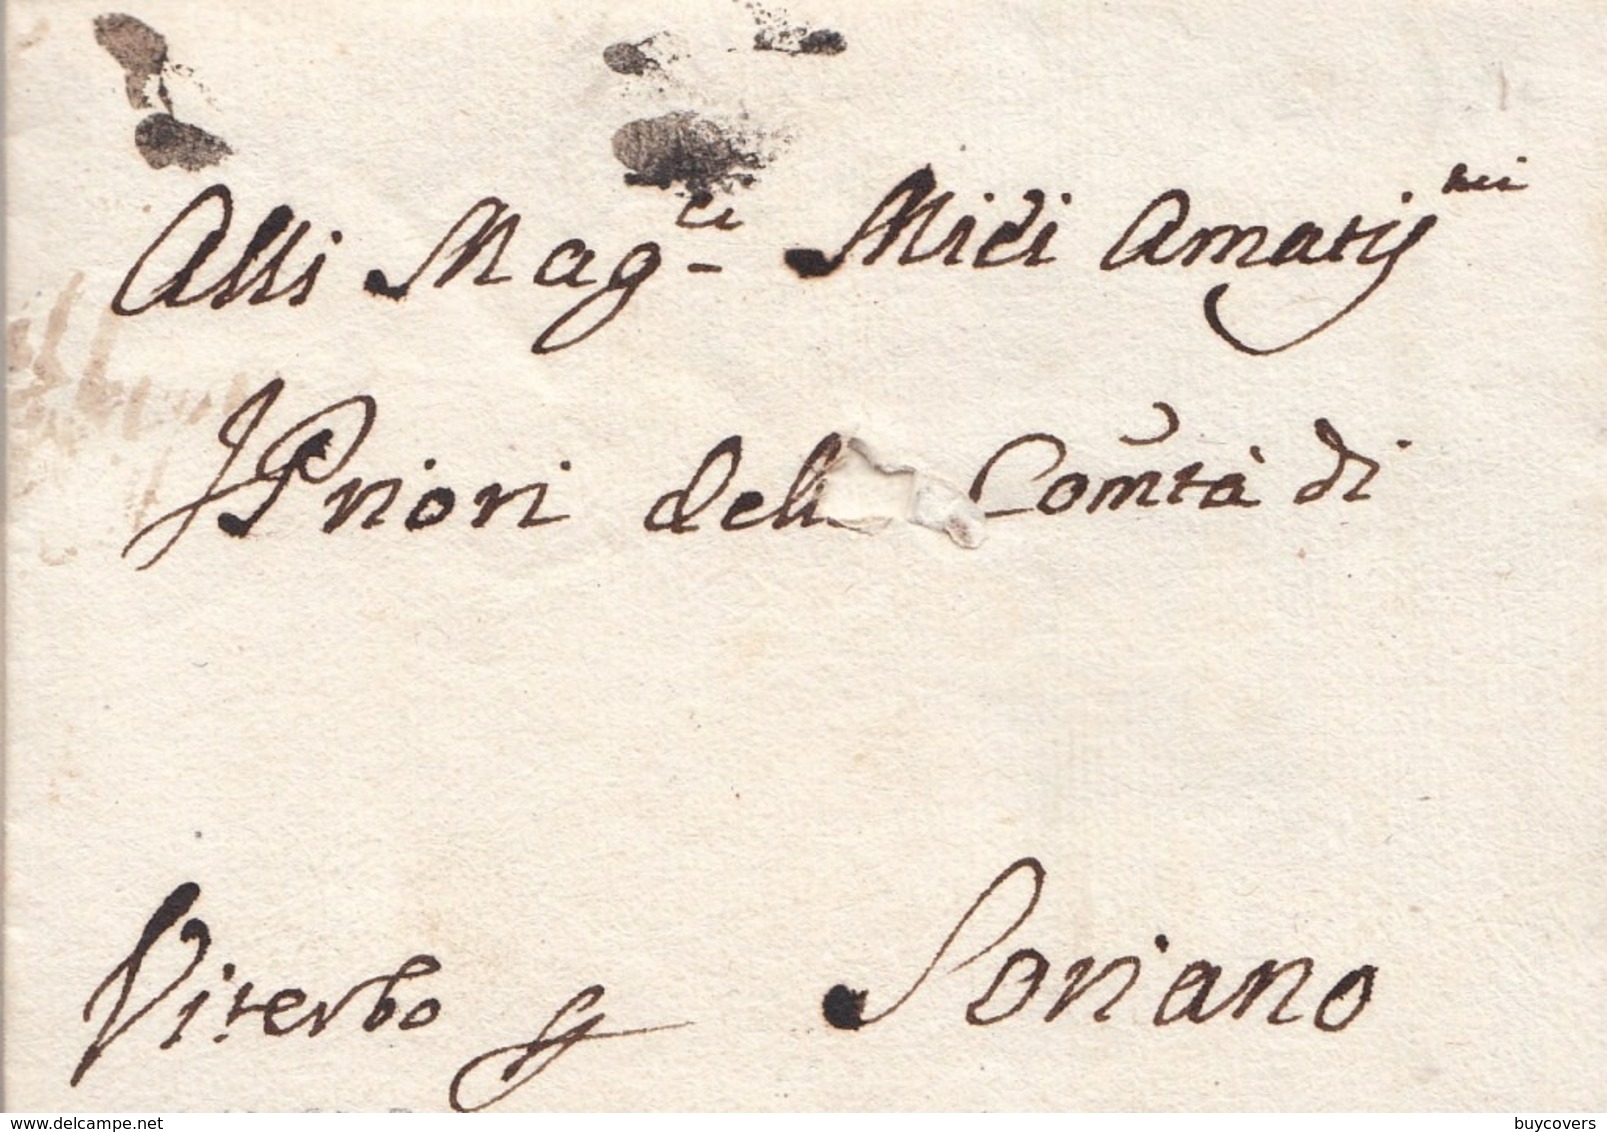 Alli Mag.ci Miei Amatis.mi
J Priori dell Com̃tà di
Viterbo p Soriano
www.delcampe.net
buycovers